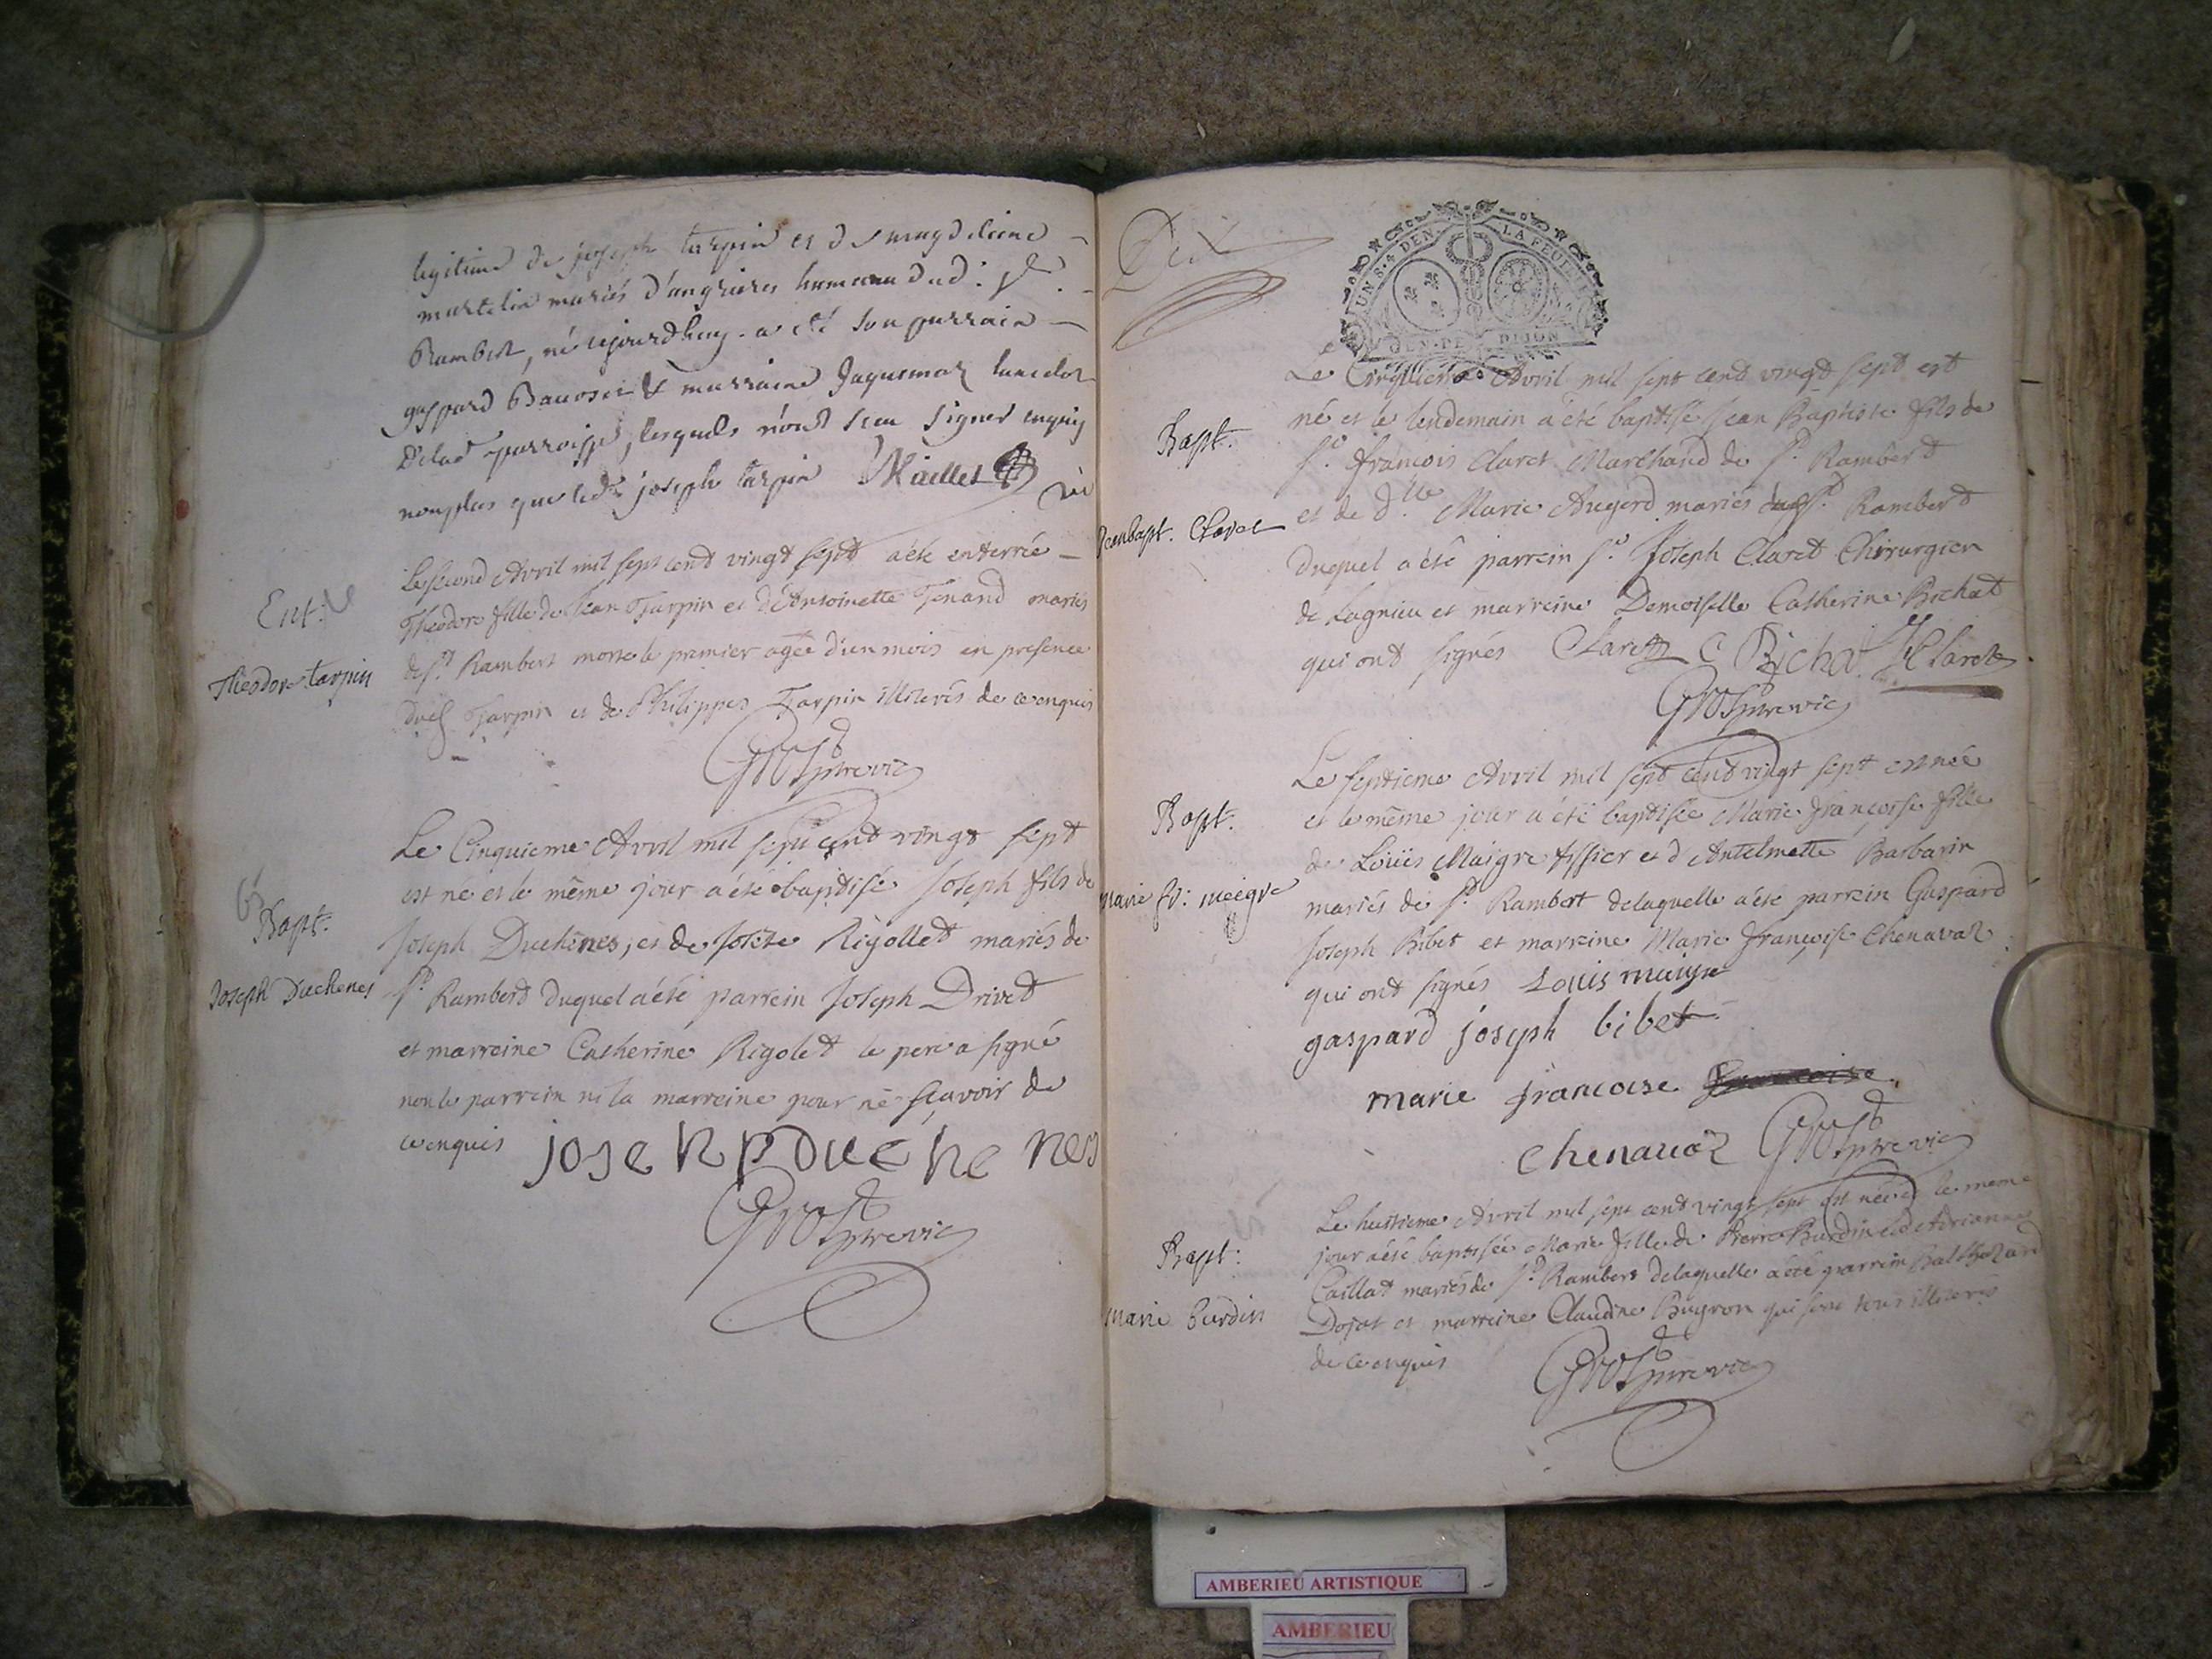 legitime de joseph tarpin et de magdelaine
martelin mariés d'angrieres hameau dud: st
Rambert, né cejourdhuy. a eté son parrain
gaspard & marraine Jaquemaz
delad parroisse, lesquels n'ont sceu signer enquis
nonplus que led: joseph tarpin Maillet
Ent:
Theodore tarpin
Le second Avril mil sept cent vingt sept a été enterrée
Theodore fille de Jean Tarpin et d'Antoinette Tenand mariés
de st Rambert morte le premier agée d'un mois en presence
dud Tarpin et de Philippes Tarpin illiterés de ce enquis
Bapt:
Joseph Duchenes
Le Cinquieme Avril mil sept cent vingt sept
est né et le même jour a été baptisé Joseph fils de
Joseph Duchênes, et de Josète Rigollet mariés de
st Rambert duquel a été parrein Joseph Drivet
et marreine Catherine Rigolet le pere a signé
non le parrein ni la marreine pour ne sçavoir de
ce enquis joseph Duchenes
Dix
UN S. 4 DEN. LA FEUILLE
GEN. DE DIJON
Bapt:
Jean bapt. Claret
Le Cinquieme Avril mil sept cent vingt sept est
né et le lendemain a été baptisé Jean Baptiste fils de
sr. françois Claret Marchand de st. Rambert
et de dlle Marie Augerd mariés dud st. Rambert
duquel a été parrein sr. Joseph Claret Chirurgien
de Lagnieu et marreine Demoiselle Catherine Bichat
qui ont signés Claret C Bichat J Claret
Bapt.
marie fr: meigre
Le septieme Avril mil sept cent vingt sept est née
et le même jour a été baptisée Marie françoise fille
de Loüis Maigre tissier et d'Antelmette Barbarin
mariés de st. Rambert delaquelle a été parrein Gaspard
Joseph Bibet et marreine Marie françoise Chenavaz
qui ont signés Louis maigre
gaspard joseph bibet
marie francoise
chenauaz
Bapt:
marie burdin
Le huitieme Avril mil sept cent vingt sept est née et le meme
jour a été baptisée Marie fille de Pierre Burdin et d'Adrianne
Caillat mariés de st. Rambert delaquelle a été parrein Balthazard
Dojat et marreine Claudine Bugron qui sont tous illiterés
de ce enquis
AMBERIEU ARTISTIQUE
AMBERIEU